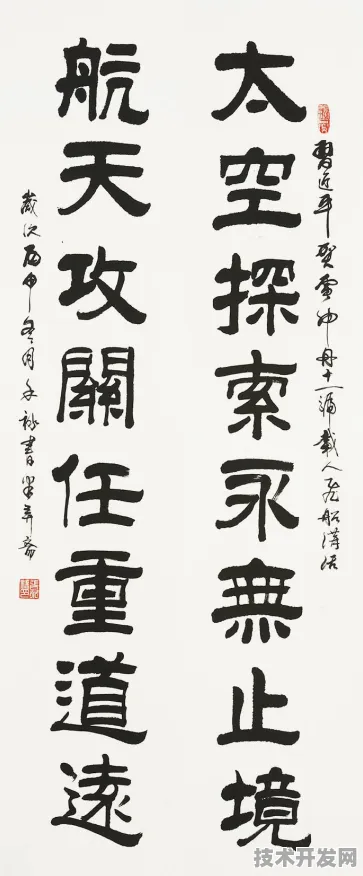 太空探索永無止境
航天攻關任重道遠
習近平賀電神舟十一號載人飛船講話
歲次丙申冬月
書
技术开发网